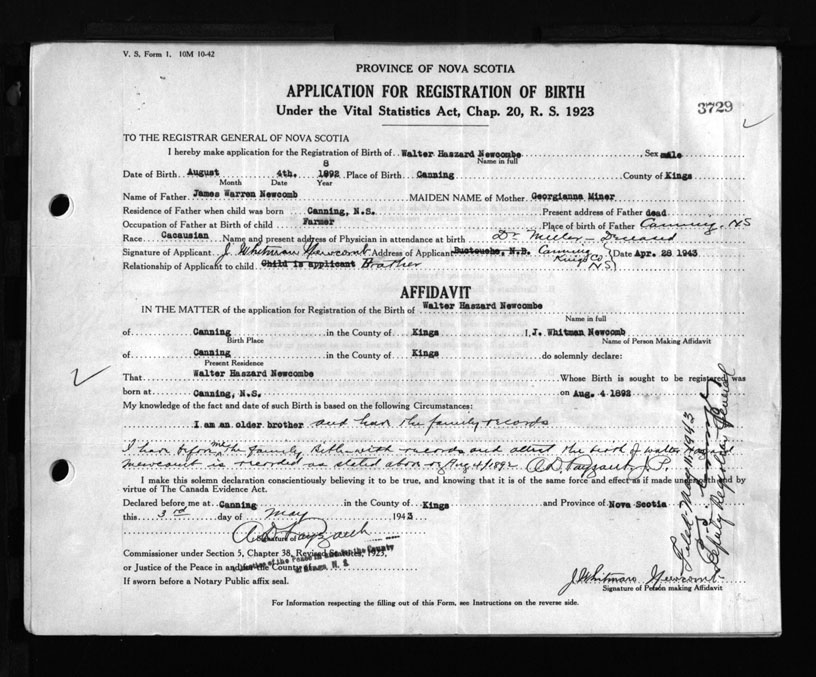 V. S. Form 1. 10M 10-42
PROVINCE OF NOVA SCOTIA
APPLICATION FOR REGISTRATION OF BIRTH
3729
Under the Vital Statistics Act, Chap. 20, R. S. 1923
TO THE REGISTRAR GENERAL OF NOVA SCOTIA
I hereby make application for the Registration of Birth of Walter Haszard Newcombe Sex male
Name in full
8
Date of Birth August 4th. 1892 Place of Birth Canning County of Kings
Month Date Year
Name of Father James Warren Newcomb MAIDEN NAME of Mother Georgianna Miner
Residence of Father when child was born Canning, N.S. Present address of Father dead
Occupation of Father at Birth of child Farmer Place of birth of Father Canning, NS
Race Cacausian Name and present address of Physician in attendance at birth Dr Miller - Deceased
Signature of Applicant J. Whitman Newcomb Address of Applicant Buctouche, N.B. Canning Kings Co NS Date Apr. 28 1943
Relationship of Applicant to child Child is applicant Brother
AFFIDAVIT
IN THE MATTER of the application for Registration of the Birth of Walter Haszard Newcombe
Name in full
of Canning in the County of Kings I, J. Whitman Newcomb
Birth Place Name of Person Making Affidavit
of Canning in the County of Kings do solemnly declare:
Present Residence
That Walter Haszard Newcombe Whose Birth is sought to be registered was
born at Canning, N.S. on Aug. 4 1892
My knowledge of the fact and date of such Birth is based on the following Circumstances:
I am an older brother and have the family records
I have before me the family Birth records and attest the birth of Walter
Newcomb is recorded as stated above Aug 4/1892
I make this solemn declaration conscientiously believing it to be true, and knowing that it is of the same force and effect as if made under oath and by
virtue of The Canada Evidence Act.
Declared before me at Canning in the County of Kings and Province of Nova Scotia
this 3rd day of May 1943
Commissioner under Section 5, Chapter 38, Revised Statutes, 1923,
or Justice of the Peace in and for the County of
Justice of the Peace in and for the County of Kings N. S.
If sworn before a Notary Public affix seal.
J. Whitman Newcomb
Signature of Person making Affidavit
For Information respecting the filling out of this Form, see Instructions on the reverse side.
Filed May 11, 1943
Deputy Registrar General